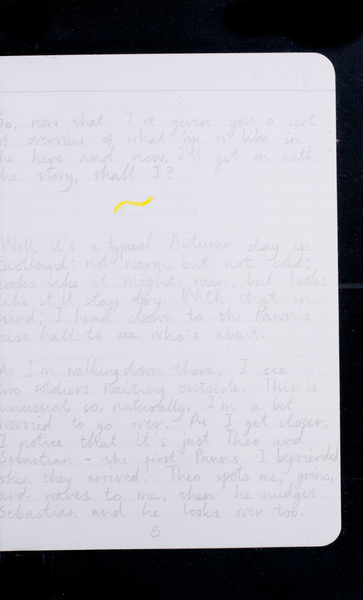 So, now that I've given you a sort
of overview of what life is like in
he here and now, I'll get on with
he story, shall I?
Well, it's a typical Autumn day in
Scotland: not warm, but not cold;
looks like it might rain, but looks
like it'll stay dry. With that in
mind, I head down to the Pawn's
mess hall to see who's about.
As I'm walking down there, I see
two soldiers waiting outside. This is
unusual, so, naturally, I'm a bit
worried to go over. As I get closer,
I notice that it's just Theo and
Sebastian - the first Pawns I befriended
when they arrived. Theo spots me, grins,
and waves to me, then he nudges
Sebastian and he looks over too.
5